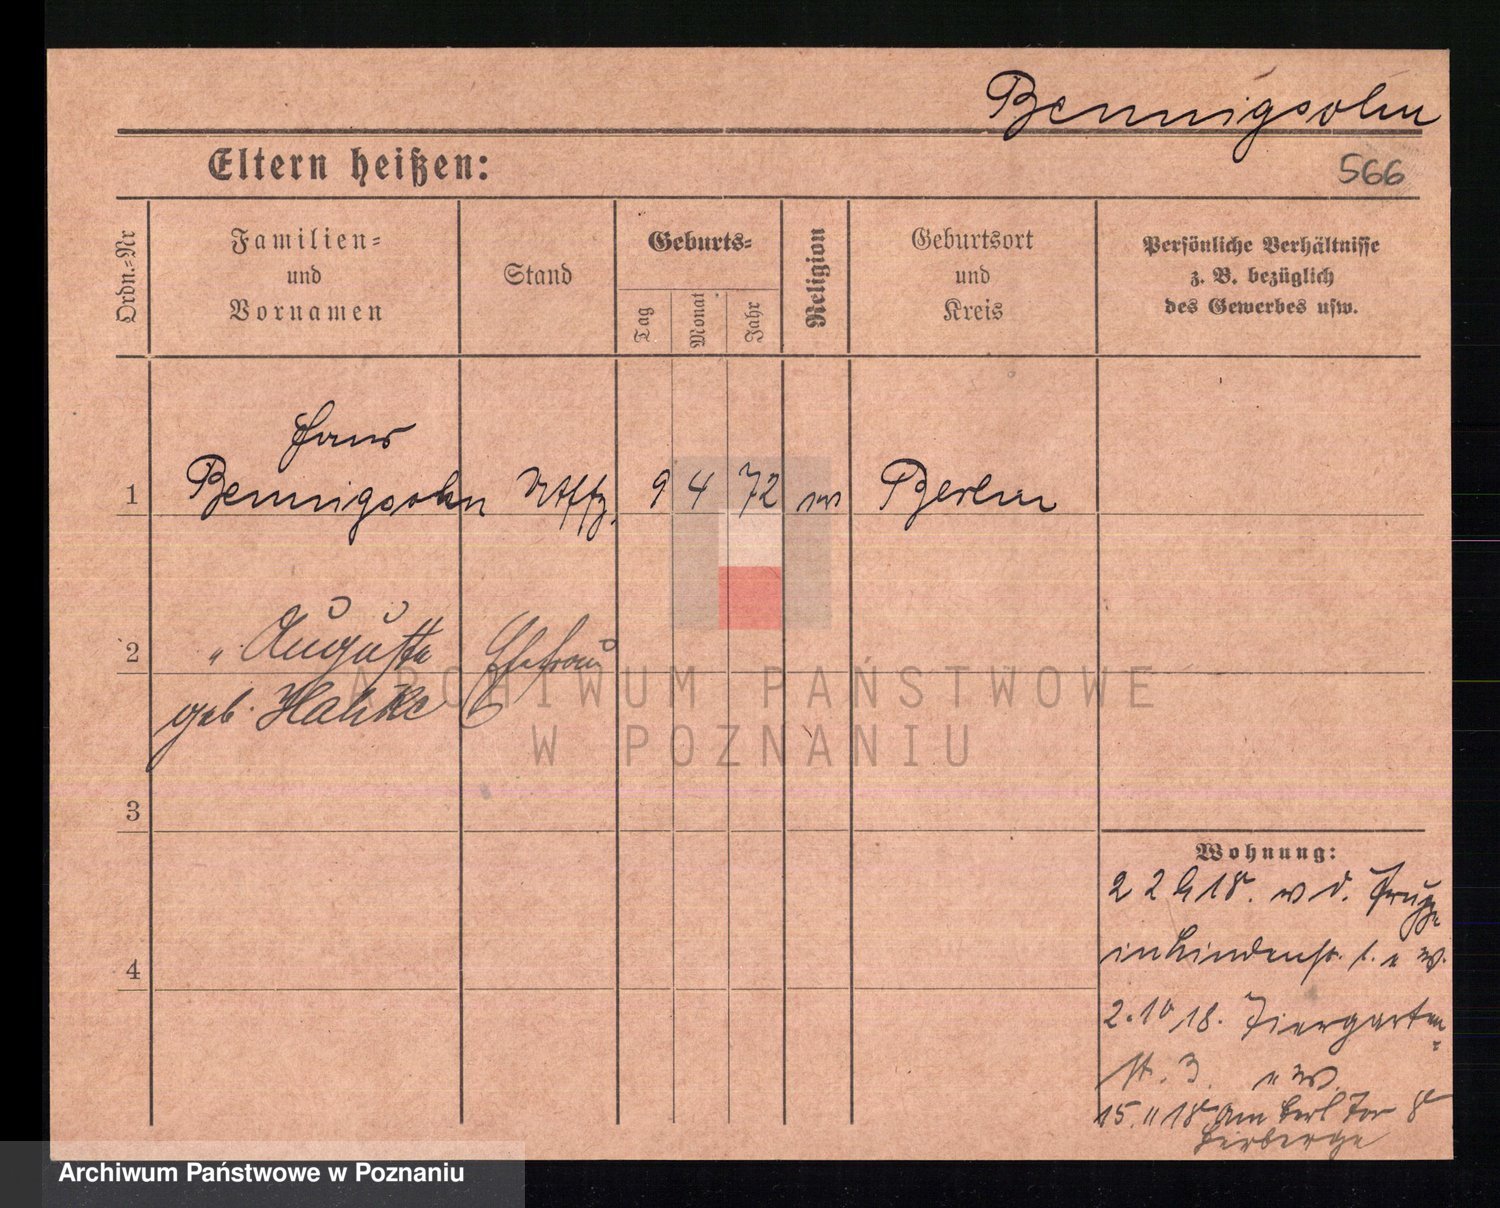 Bennigsohn
Eltern heißen:
566
Ordn.-Nr
Familien-
und
Vornamen
Stand
Geburts-
Tag
Monat
Jahr
Religion
Geburtsort
und
Kreis
Persönliche Verhältnisse
z. B. bezüglich
des Gewerbes usw.
Hans
1 Bennigsohn Utffz. 9 4 72 ev Berlin
2 " Auguste Ehefrau
geb. Hahke
3
Wohnung:
4
2.10 18. Tiergarten-
st. 3.
15. 11 18 Am Berl Tor 8
Herberge
ARCHIWUM PAŃSTWOWE
W POZNANIU
Archiwum Państwowe w Poznaniu